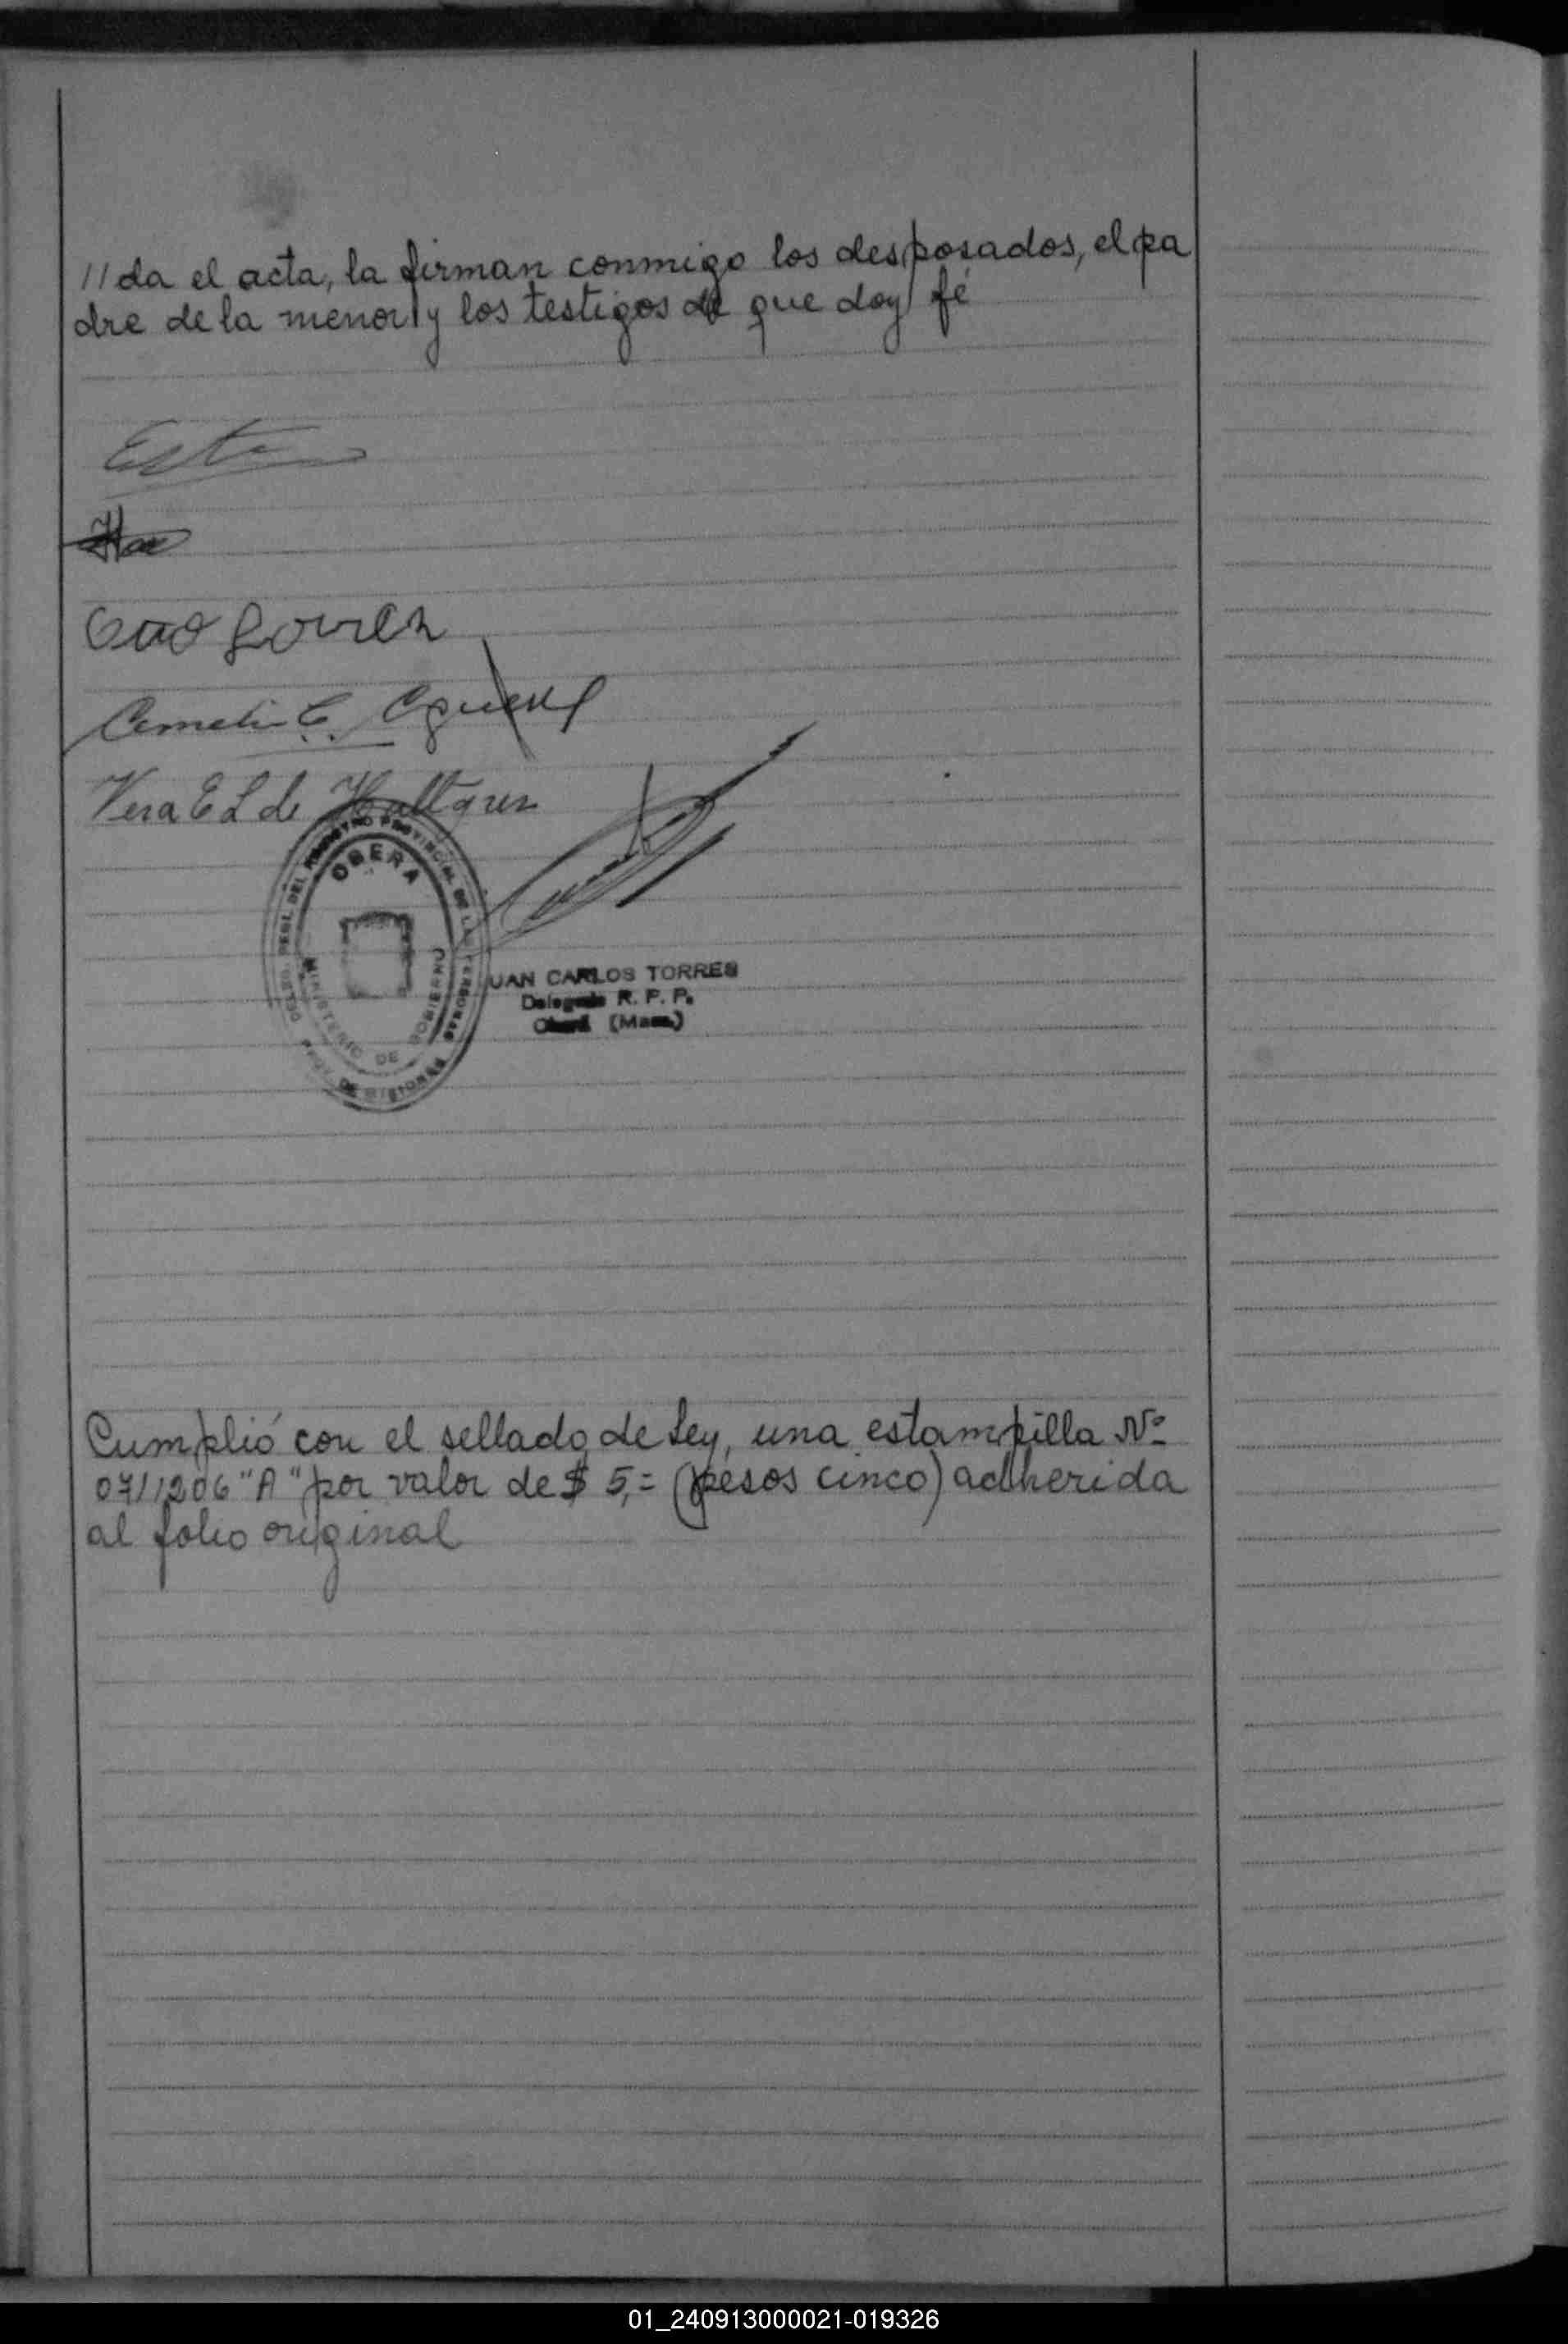 //da el acta, la firman conmigo los desposados, el pa
dre de la menor y los testigos de que doy fé
Vera E L de Hultgren
OBERA
MINISTERIO DE GOBIERNO
PROV. DE MISIONES
JUAN CARLOS TORRES
Delegado R. P. P.
Oberá (Mnes.)
Cumplió con el sellado de Ley, una estampilla Nº
0711206 "A" por valor de $ 5,= (pesos cinco) adherida
al folio original
01_240913000021-019326